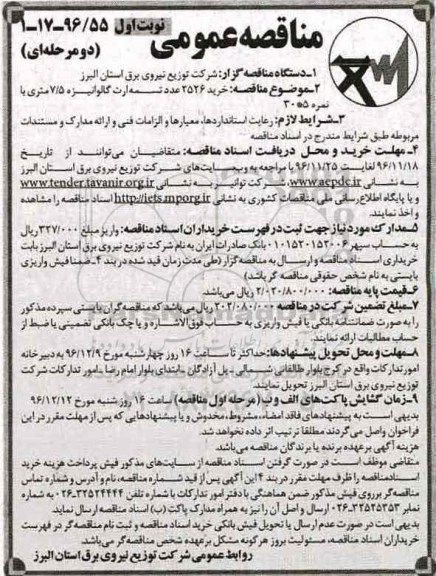 مناقصه عمومی
نوبت اول ۹۶/۵۵-۱۷-۱
(دو مرحله‌ای)
۱-دستگاه مناقصه گزار: شرکت توزیع نیروی برق استان البرز
۲-موضوع مناقصه: خرید ۲۵۲۶ عدد تسمه ارت گالوانیزه ۷/۵ متری با
نمره ۵*۳۰
۳-شرایط لازم: رعایت استانداردها، معیارها و الزامات فنی و ارائه مدارک و مستندات
مربوطه طبق شرایط مندرج در اسناد مناقصه
۴- مهلت خرید و محل دریافت اسناد مناقصه: متقاضیان می‌توانند از تاریخ
۹۶/۱۱/۱۸ لغایت ۹۶/۱۱/۲۵ با مراجعه به وب‌سایت‌های شرکت توزیع نیروی برق استان البرز
به نشانی www.aepdc.ir، شرکت توانیر به نشانی www.tender.tavanir.org.ir
و یا پایگاه اطلاع‌رسانی ملی مناقصات کشوری به نشانی http://iets.mporg.ir اسناد مناقصه را مشاهده
و اخذ نمایند.
۵-مدارک مورد نیاز جهت ثبت در فهرست خریداران اسناد مناقصه: واریز مبلغ ۳۲۷/۰۰۰ ریال
به حساب سپهر ۰۱۰۱۵۲۰۱۵۲۰۰۶ بانک صادرات ایران به نام شرکت توزیع نیروی برق استان البرز بابت
خریداری اسناد مناقصه و ارسال به مناقصه گزار (طی مدت زمان قید شده در بند ۴-ضمنا فیش واریزی
بایستی به نام شخص حقوقی مناقصه گر باشد)
۶-قیمت پایه مناقصه: ۲/۰۲۰/۸۰۰/۰۰۰ ریال می‌باشد.
۷-مبلغ تضمین شرکت در مناقصه: ۲۰۲/۰۸۰/۰۰۰ ریال می‌باشد که مناقصه‌گران بایستی سپرده مذکور
را به صورت ضمانتنامه بانکی یا فیش واریزی به حساب فوق‌الاشاره و یا چک بانکی تضمینی یا ضبط از
حساب مطالبات ارائه نمایند.
۸-مهلت و محل تحویل پیشنهادها: حداکثر تا ساعت ۱۶ روز چهارشنبه مورخ ۹۶/۱۲/۹ به دبیرخانه
امور تدارکات واقع در کرج بلوار طالقانی شمالی-پل آزادگان-ابتدای بلوار امام رضا-امور تدارکات شرکت
توزیع نیروی برق استان البرز تحویل نمایند.
۹-زمان گشایش پاکت‌های الف و ب (مرحله اول مناقصه) ساعت ۱۶ روز شنبه مورخ ۹۶/۱۲/۱۲
بدیهی است به پیشنهادهای فاقد امضاء، مشروط، مخدوش و یا پیشنهادهایی که پس از مهلت مقرر در این
فراخوان واصل می‌گردند مطلقا ترتیب اثر داده نخواهد شد.
هزینه آگهی بر عهده برنده یا برندگان مناقصه می‌باشد.
متقاضی موظف است در صورت گرفتن اسناد مناقصه از سایت‌های مذکور فیش پرداخت هزینه خرید
اسناد مناقصه را ظرف مهلت مقرر در بند ۴ این آگهی پس از قید شماره مناقصه، نام و آدرس و شماره تماس
مناقصه‌گر بر روی فیش مذکور ضمن هماهنگی با دفتر امور تدارکات با شماره تلفن ۳۲۵۲۴۴۴۴-۰۲۶ به شماره
نمابر ۳۲۵۲۵۳۵۳-۰۲۶ ارسال و اصل آن را نیز به همراه مدارک پاکت (ب) اسناد مناقصه ارسال نماید.
بدیهی است در صورت عدم ارسال یا تحویل فیش بانکی خرید اسناد مناقصه و ثبت نام مناقصه‌گر در فهرست
خریداران اسناد مناقصه، مسئولیت بروز هرگونه مشکل بر عهده شخص مناقصه گر می‌باشد.
روابط عمومی شرکت توزیع نیروی برق استان البرز